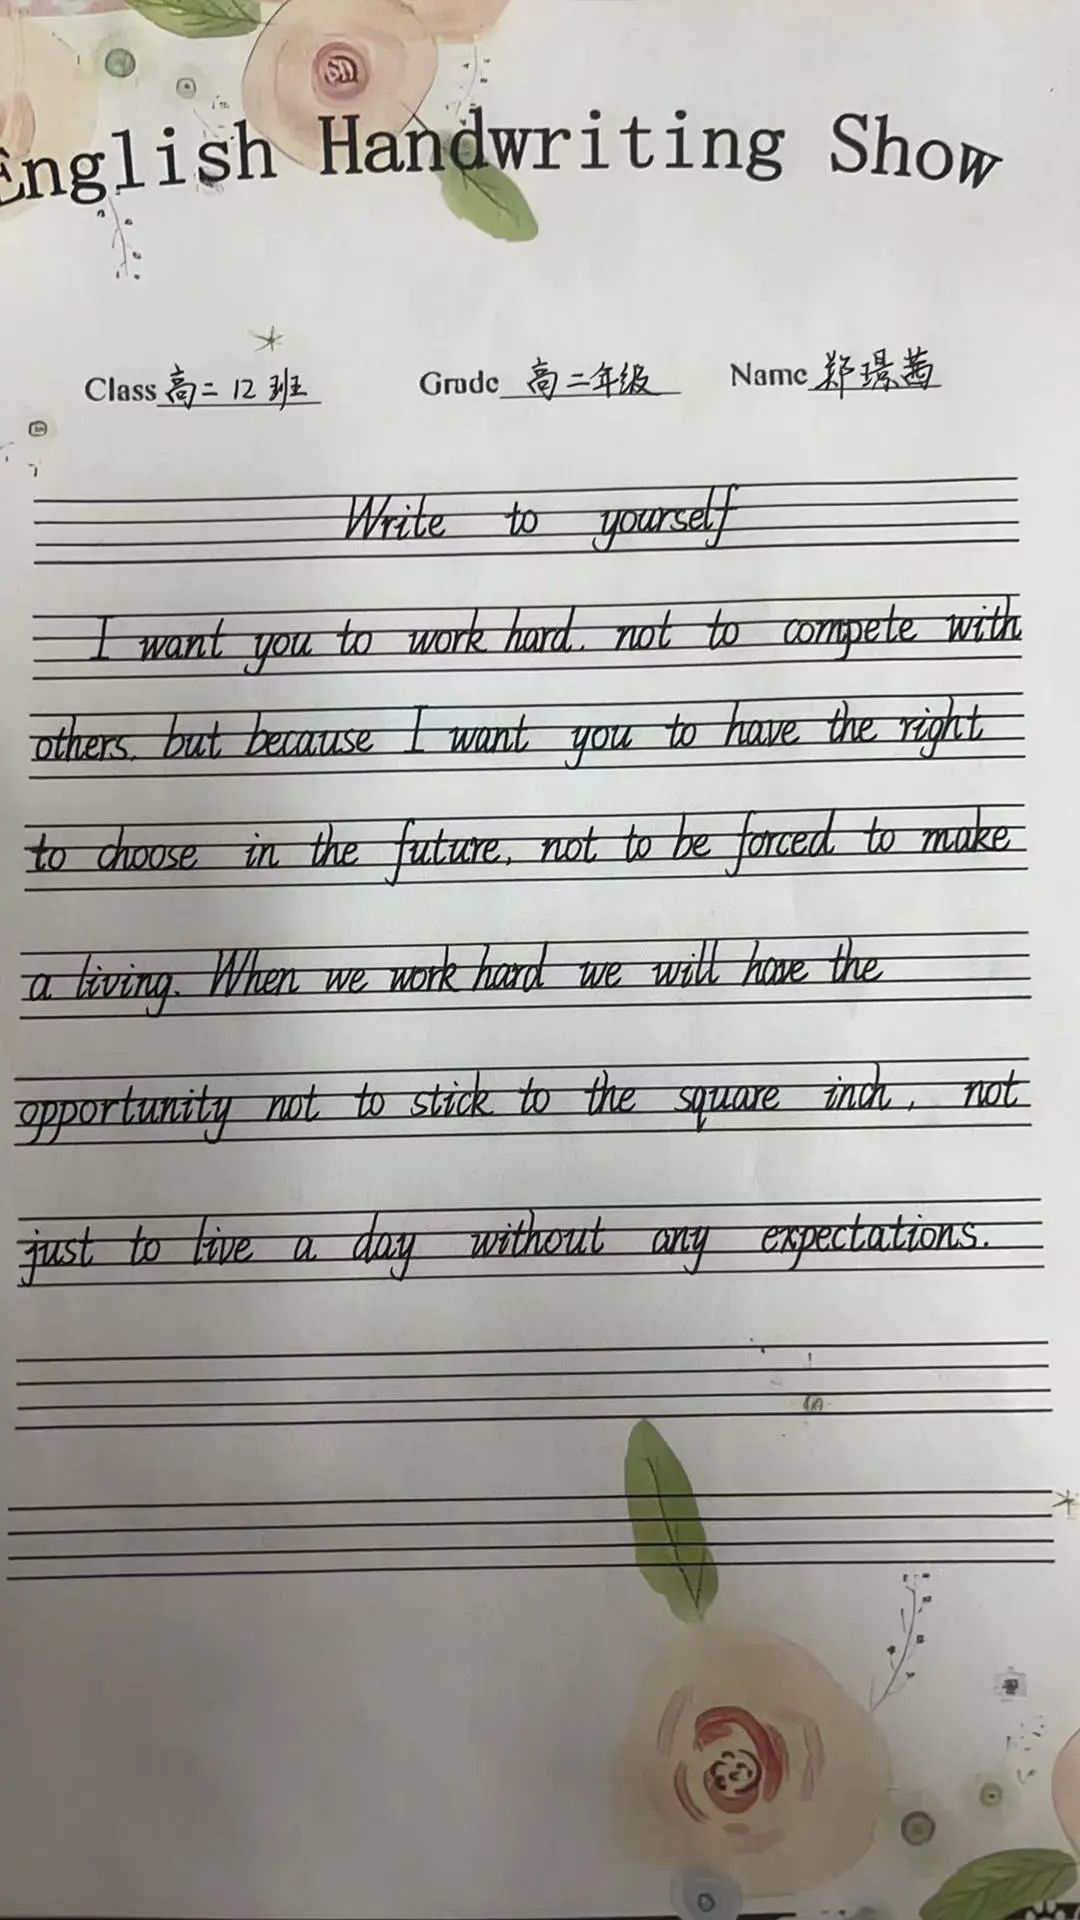 English Handwriting Show
Class 高二12班 Grade 高二年级 Name 郑璟茜
Write to yourself
I want you to work hard. not to compete with
others. but because I want you to have the right
to choose in the future, not to be forced to make
a living. When we work hard we will have the
opportunity not to stick to the square inch, not
just to live a day without any expectations.